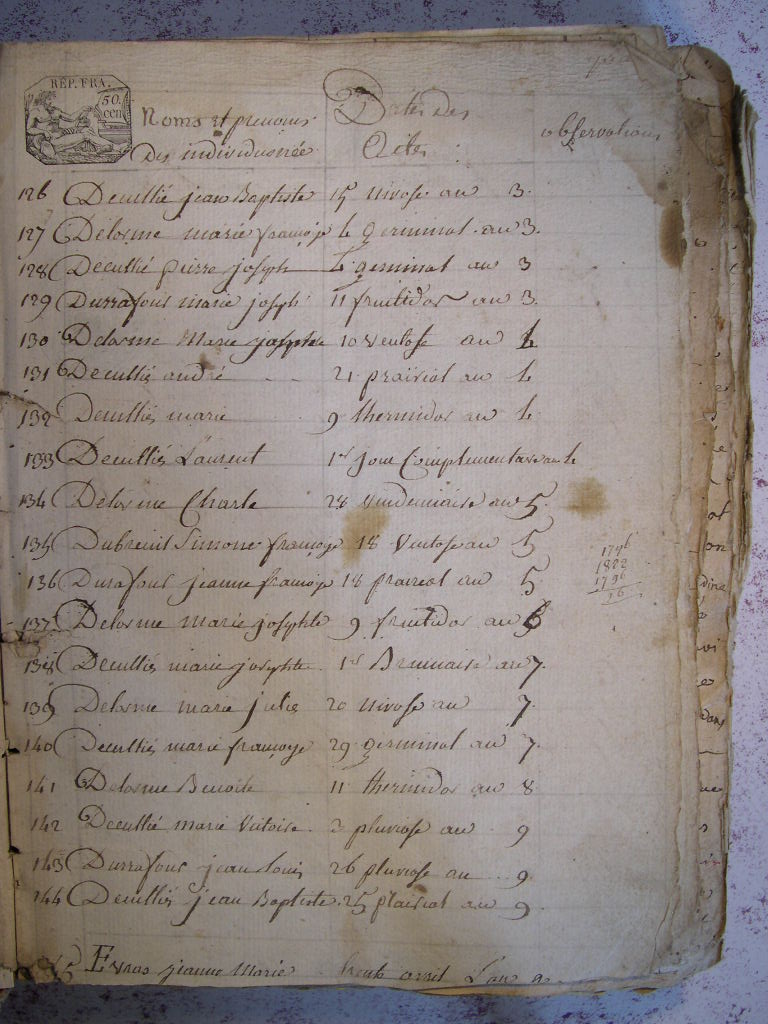 REP. FRA.
50. cen
Noms et prenoms Dates des observations
Des individus née Actes
126 Decultié jean Baptiste 15 nivose an 3.
127 Delorme marie françoise 6 germinal an 3.
128 Decultié pierre joseph 6 germinal an 3
129 Durrafour marie joseph 11 fructidor an 3.
130 Delorme Marie josephte 10 ventose an 4
131 Decultié andré 21 prairial an 4
132 Decultiés marie 9 thermidor an 4
133 Decultiés Laurent 1er jour Complementaire an 4
134 Delorme Charle 28 Vendemiaire an 5.
135 Dubreuil Simone françoise 18 Ventose an 5
136 Durafour jeanne françoise 18 prairial an 5
137 Delorme marie josephte 9 fructidor an 6
138 Decultiés marie josephte 1er Brumaire an 7.
139 Delorme marie julie 20 nivose an 7.
140 Decultiés marie françoise 29 germinal an 7.
141 Delorme Benoite 11 thermidor an 8
142 Decultié marie Victoire. 3 pluviose an 9
143 Durrafour jean Louis 26 pluviose an 9.
144 Decultiés jean Baptiste 25 plairial an 9.
45 Evras jeanne Marie trente avril L'an 9.
1796
1822
1796
26